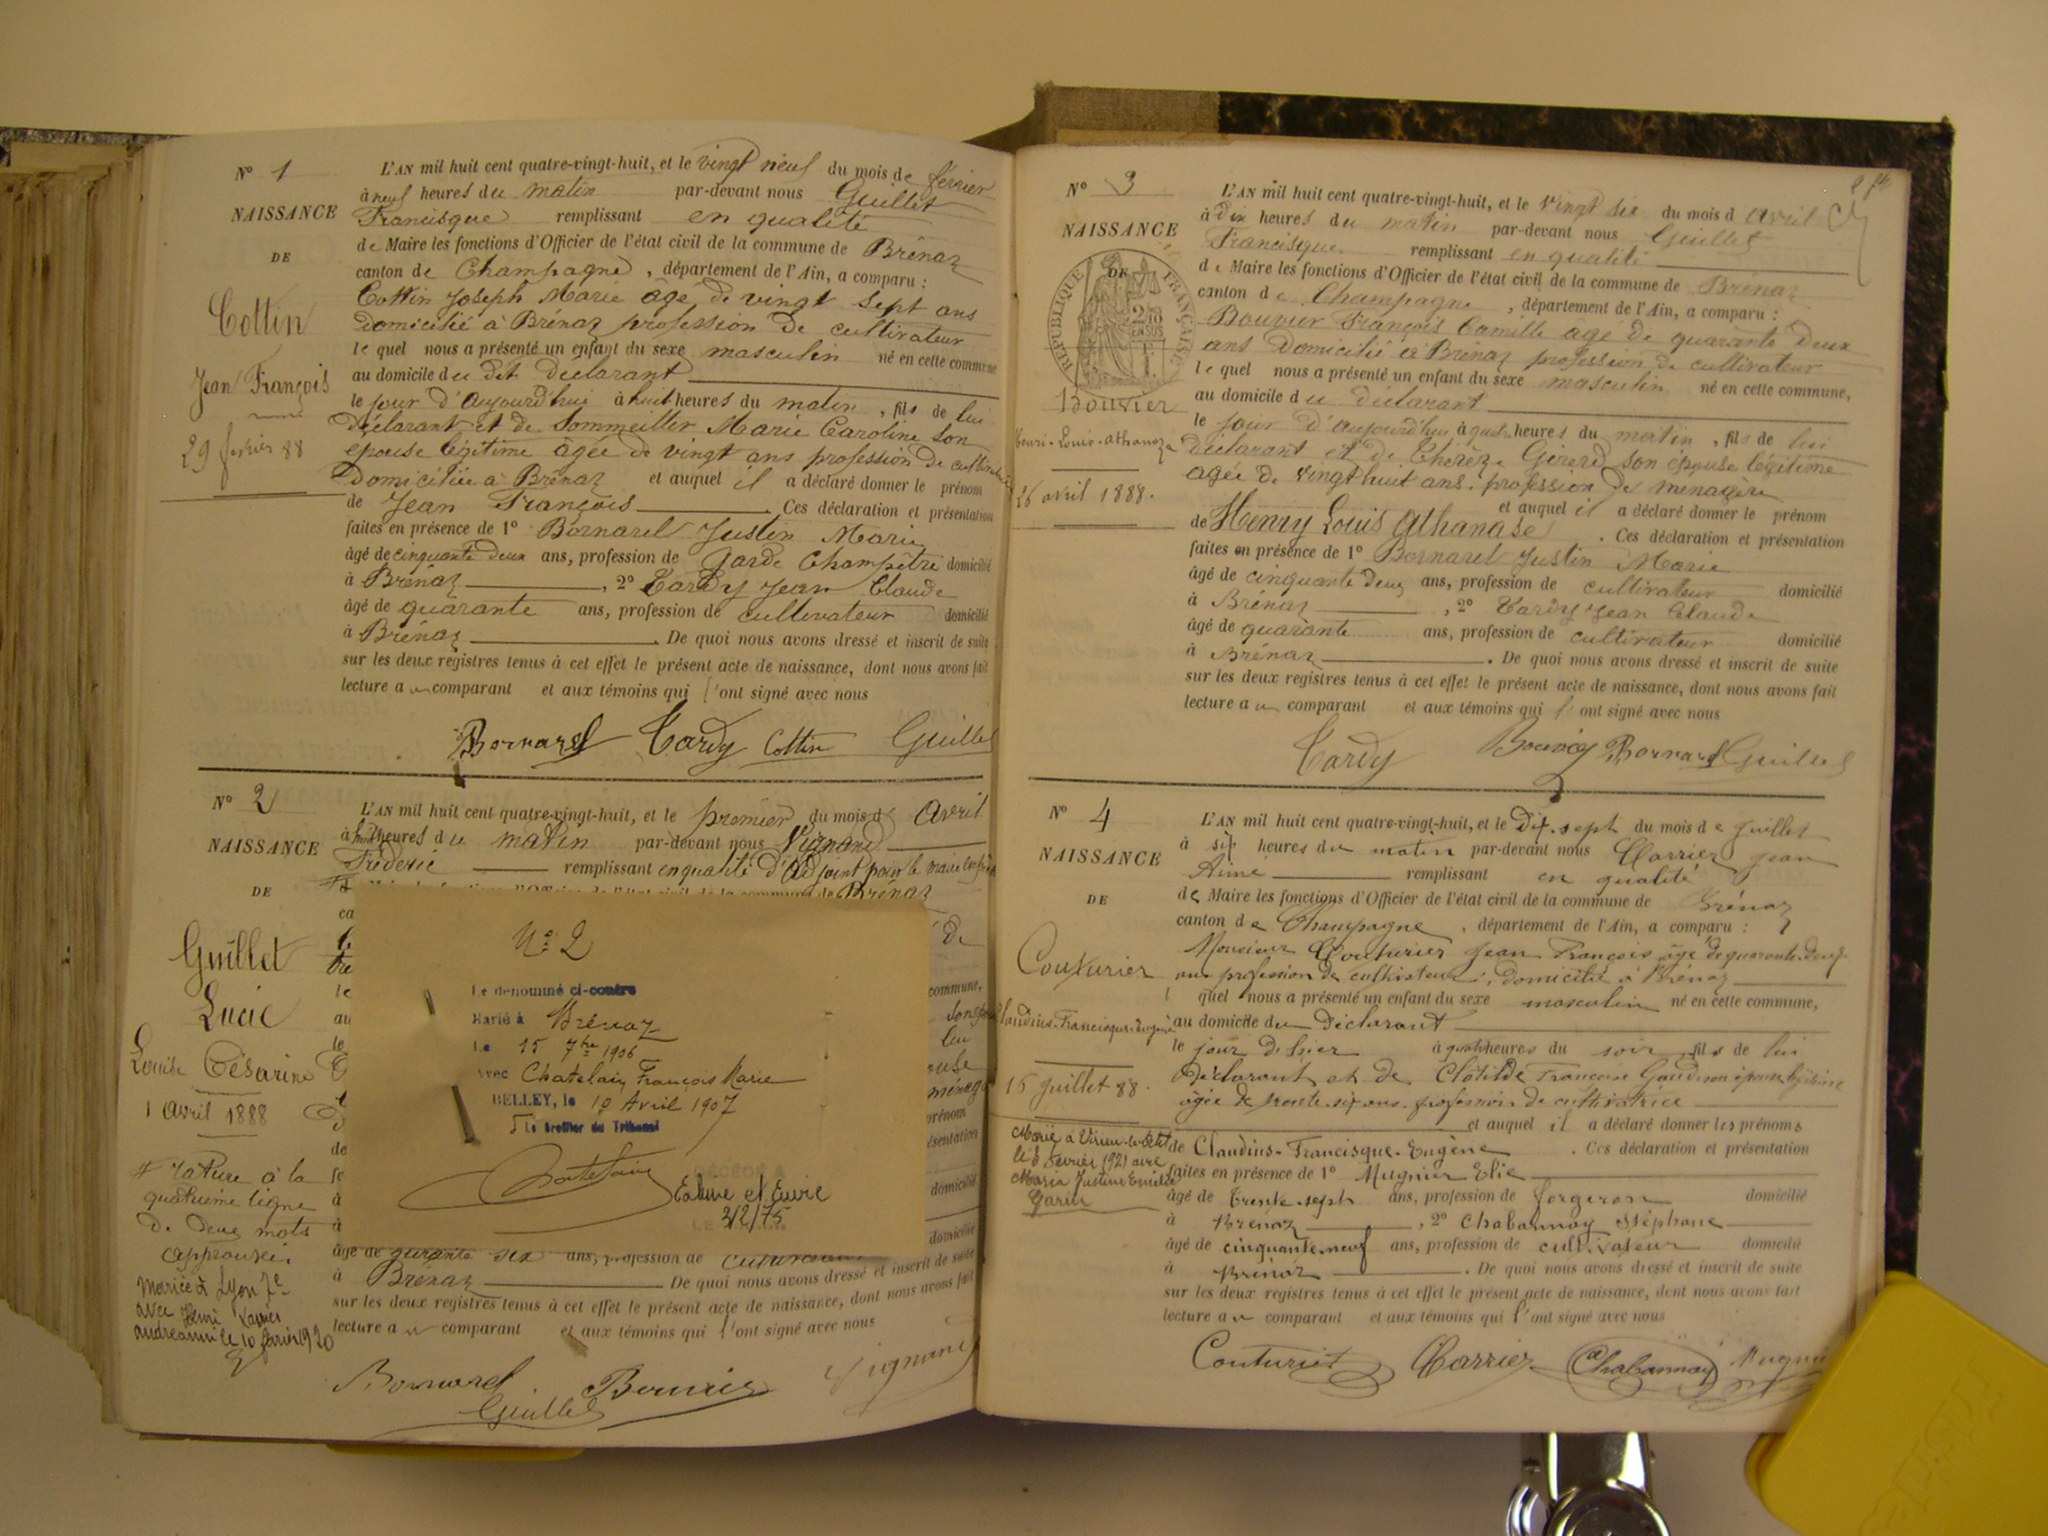 N° 1
NAISSANCE
DE
Cottin
Jean François
29 février 88
L'AN mil huit cent quatre-vingt-huit, et le vingt neuf du mois de février
à neuf heures du matin par-devant nous Guillet
Francisque remplissant en qualité
de Maire les fonctions d'Officier de l'état civil de la commune de Brénaz
canton de Champagne, département de l'Ain, a comparu :
Cottin Joseph Marie âgé de vingt sept ans
domicilié à Brénaz profession de cultivateur
lequel nous a présenté un enfant du sexe masculin né en cette commune
au domicile du dit déclarant
le jour d'aujourd'hui à huit heures du matin, fils de lui
déclarant et de Sommeiller Marie Caroline son
épouse légitime âgée de vingt ans profession de
domiciliée à Brénaz et auquel il a déclaré donner le prénom
de Jean François. Ces déclaration et présentation
faites en présence de 1° Bornarel Justin Marie
âgé de cinquante deux ans, profession de garde champêtre domicilié
à Brénaz, 2° Tardy Jean Claude
âgé de quarante ans, profession de cultivateur domicilié
à Brénaz. De quoi nous avons dressé et inscrit de suite
sur les deux registres tenus à cet effet le présent acte de naissance, dont nous avons fait
lecture au comparant et aux témoins qui l'ont signé avec nous
Bornarel Tardy Cottin Guillet
N° 2
NAISSANCE
DE
Guillet
Lucie
Louise Césarine
1 avril 1888
# rature à la
quatrième ligne
de deux mots
approuvée
Mariée à Lyon 7e
avec Henri Xavier
le 10 février 1920
L'AN mil huit cent quatre-vingt-huit, et le premier du mois d avril
à huit heures du matin par-devant nous Vignand
Fréderic remplissant en qualité d'adjoint pour le maire
Brénaz
N° 2
Le dénommé ci-contre
Marié à Brénaz
Le 15 7bre 1906
avec Chatelain François Marie
BELLEY, le 10 Avril 1907
Le Greffier du Tribunal
DÉCÉDÉ A
2/2/75
LE
commune,
lui
prénom
présentation
domicilié
domicilié
âgé de quarante six ans, profession de cultivateur
à Brénaz. De quoi nous avons dressé et inscrit de suite
sur les deux registres tenus à cet effet le présent acte de naissance, dont nous avons fait
lecture au comparant et aux témoins qui l'ont signé avec nous
Bornarel Bouvier Vignand
Guillet
N° 3
NAISSANCE
DE
RÉPUBLIQUE FRANÇAISE
Bouvier
Henri-Louis-athanaze
26 avril 1888.
L'AN mil huit cent quatre-vingt-huit, et le vingt six du mois d avril
à dix heures du matin par-devant nous Guillet
Francisque remplissant en qualité
de Maire les fonctions d'Officier de l'état civil de la commune de Brénaz
canton de Champagne, département de l'Ain, a comparu :
Bouvier François Camille agé de quarante deux
ans domicilié à Brénaz profession de cultivateur
lequel nous a présenté un enfant du sexe masculin né en cette commune,
au domicile du déclarant
le jour d'aujourd'hui à quatre heures du matin, fils de lui
déclarant et de Thérèze Girerd son épouse légitime
agée de vingt huit ans. profession de ménagère
et auquel il a déclaré donner le prénom
de Henry Louis Athanase. Ces déclaration et présentation
faites en présence de 1° Bornarel Justin Marie
âgé de cinquante deux ans, profession de cultivateur domicilié
à Brénaz, 2° Tardy Jean Claude
âgé de quarante ans, profession de cultivateur domicilié
à Brénaz. De quoi nous avons dressé et inscrit de suite
sur les deux registres tenus à cet effet le présent acte de naissance, dont nous avons fait
lecture au comparant et aux témoins qui l'ont signé avec nous
Tardy Bouvier Bornarel Guillet
N° 4
NAISSANCE
DE
Couturier
Claudius-Francisque-Eugène
16 juillet 88.
Marié à Virieu-le-Petit
le 8 février 1921 avec
Maria Justine Emilie
Garin
L'AN mil huit cent quatre-vingt-huit, et le dix-sept du mois de juillet
à six heures du matin par-devant nous Carrier Jean
Aimé remplissant en qualité
de Maire les fonctions d'Officier de l'état civil de la commune de Brénaz
canton de Champagne, département de l'Ain, a comparu :
Monsieur Couturier Jean François âgé de quarante-deux
ans profession de cultivateur, domicilié à Brénaz
lequel nous a présenté un enfant du sexe masculin né en cette commune,
au domicile du Déclarant
le jour d'hier à quatre heures du soir, fils de lui
déclarant et de Clotilde Françoise épouse légitime
âgée de trente-six ans. profession de cultivatrice
et auquel il a déclaré donner les prénoms
de Claudius-Francisque-Eugène. Ces déclaration et présentation
faites en présence de 1° Mugnier Elie
âgé de trente-sept ans, profession de forgeron domicilié
à Brénaz, 2° Chabannay Stéphane
âgé de cinquante-neuf ans, profession de cultivateur domicilié
à Brénaz. De quoi nous avons dressé et inscrit de suite
sur les deux registres tenus à cet effet le présent acte de naissance, dont nous avons fait
lecture au comparant et aux témoins qui l'ont signé avec nous
Couturier Carrier Chabannay Mugnier